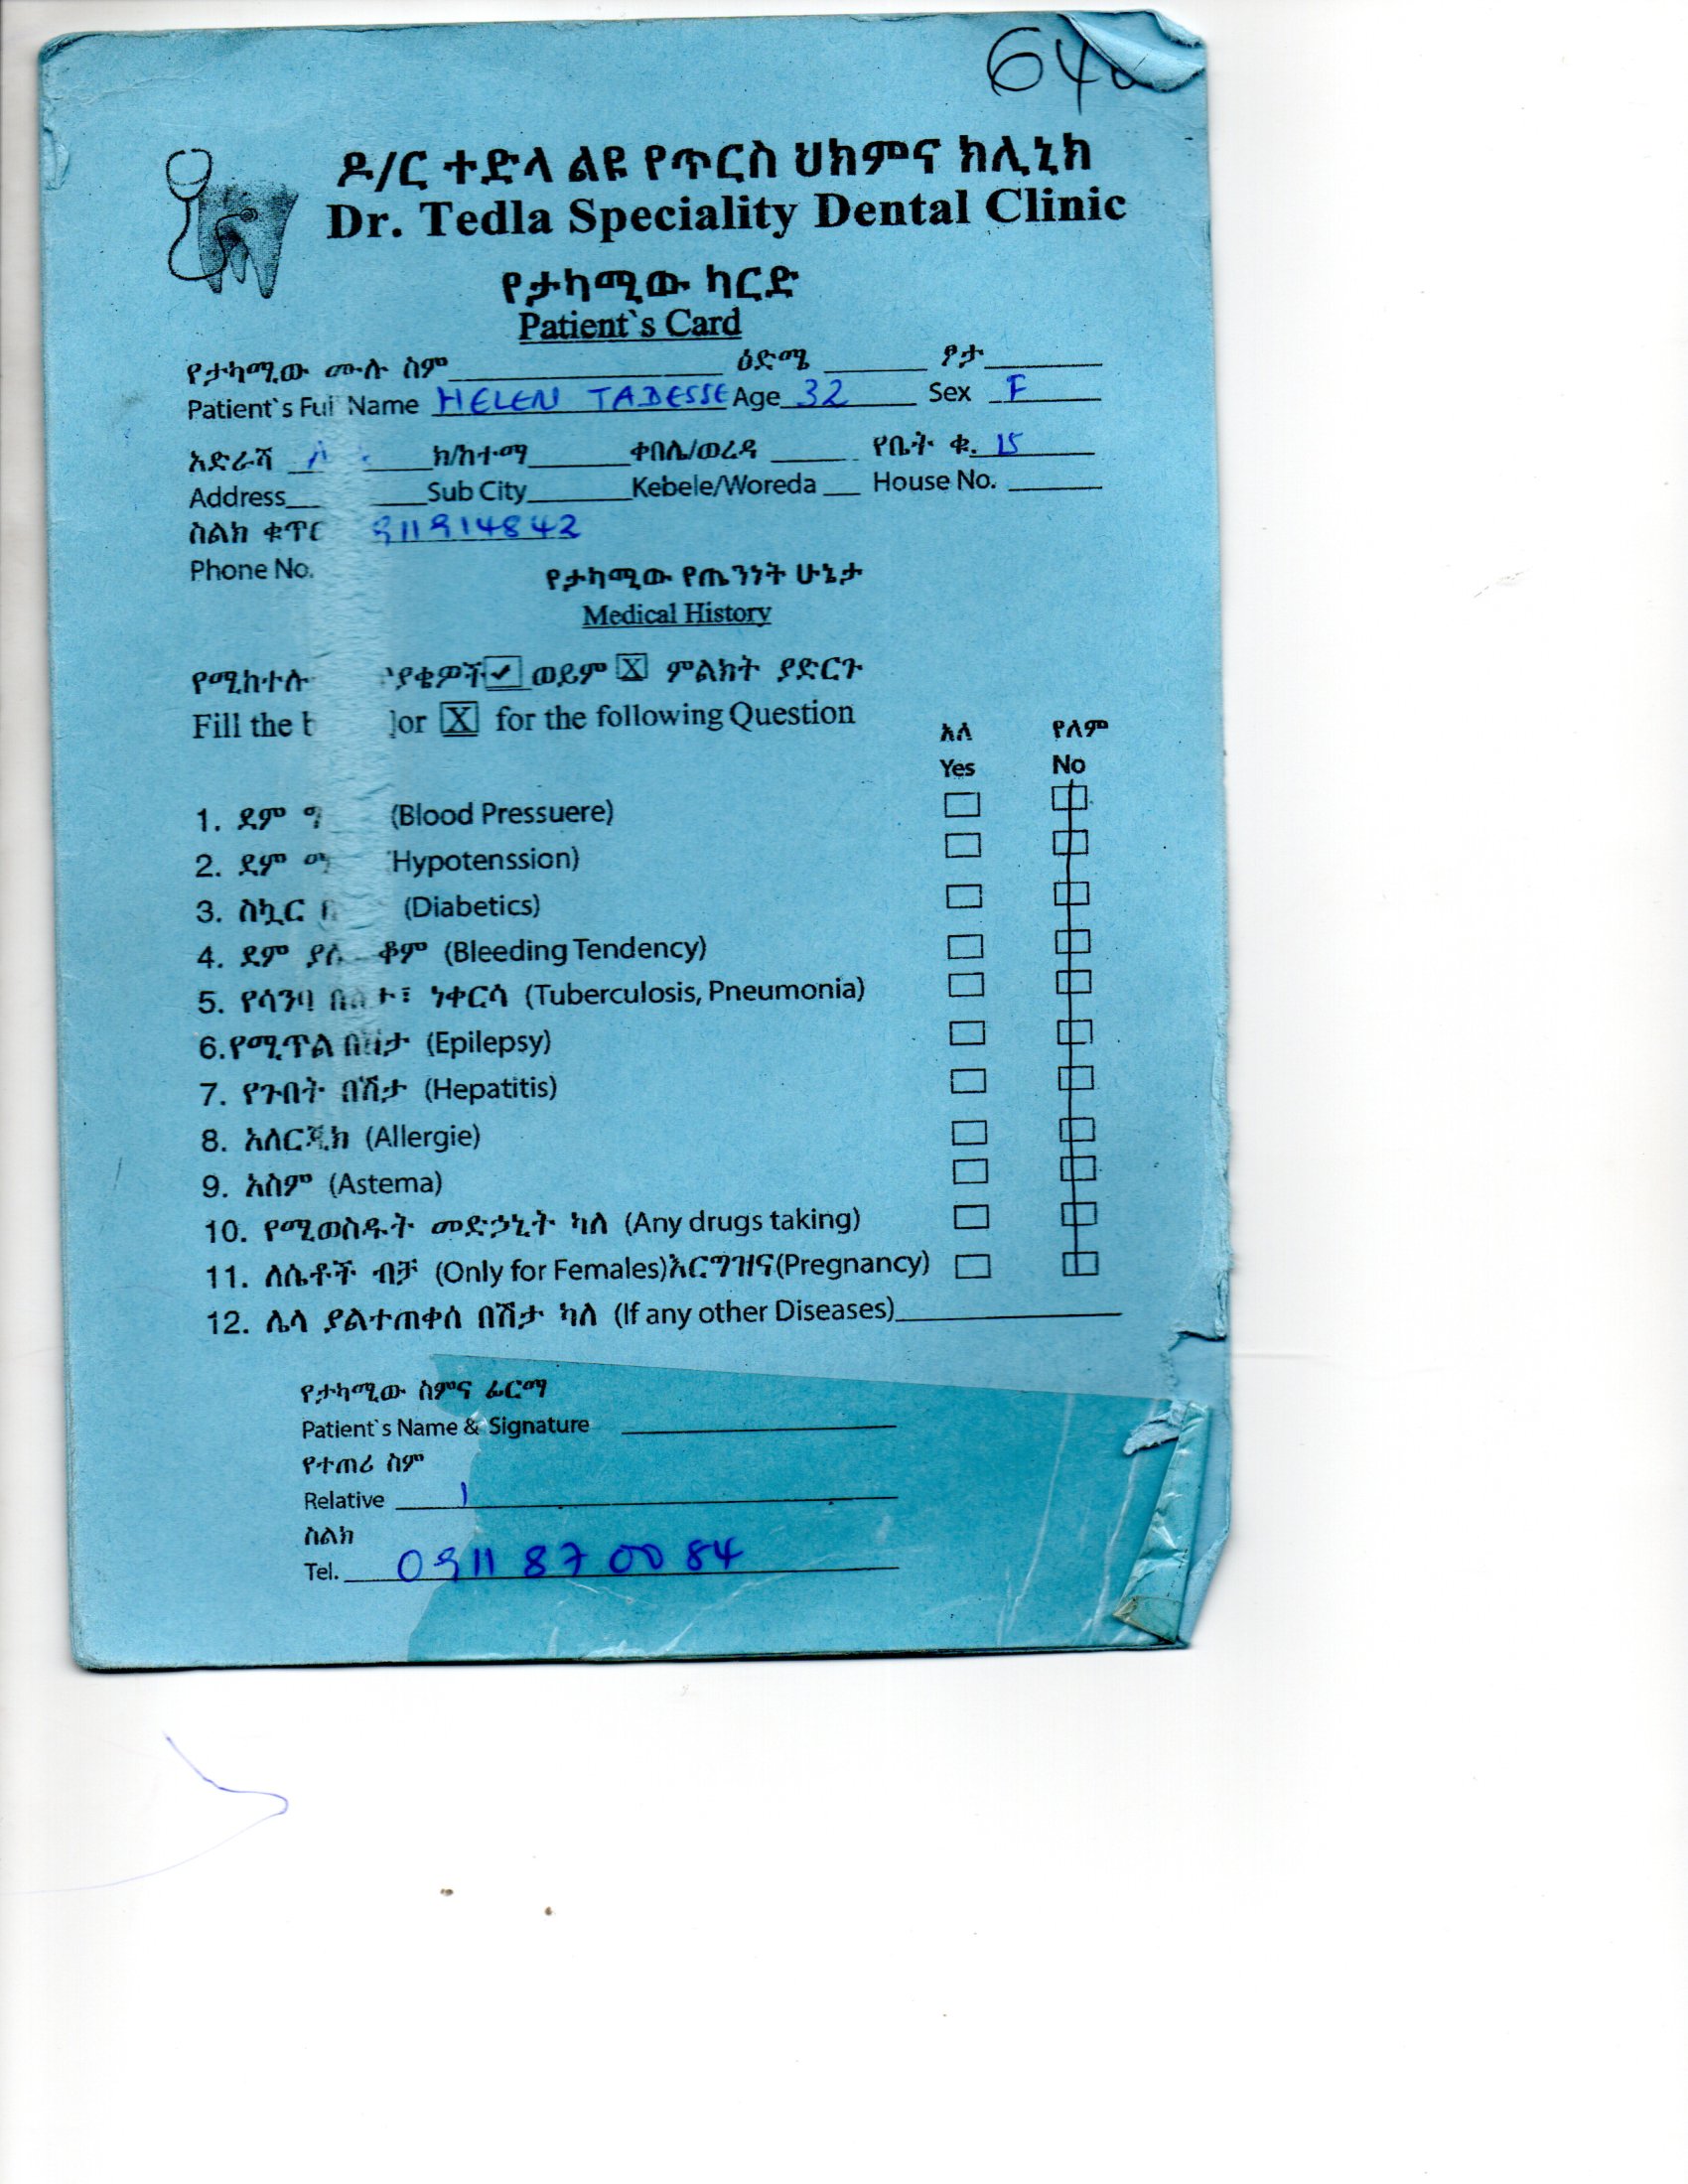 ዶ/ር ተድላ ልዩ የጥርስ ህክምና ክሊኒክ
Dr. Tedla Speciality Dental Clinic
የታካሚው ካርድ
Patient`s Card
የታካሚው ሙሉ ስም ዕድሜ ፆታ
Patient`s Ful Name HELEN TADESSE Age 32 Sex F
አድራሻ ክ/ከተማ ቀበሌ/ወረዳ የቤት ቁ. 15
Address Sub City Kebele/Woreda House No.
ስልክ ቁጥር 911914842
Phone No.
የታካሚው የጤንነት ሁኔታ
Medical History
የሚከተሉ ወይም X ምልክት ያድርጉ
Fill the or X for the following Question
አለ የለም
Yes No
1. ደም (Blood Pressuere)
2. ደም Hypotenssion)
3. ስኳር (Diabetics)
4. ደም (Bleeding Tendency)
5. የሳንባ በሽታ፣ ነቀርሳ (Tuberculosis, Pneumonia)
6.የሚጥል በሽታ (Epilepsy)
7. የጉበት በሽታ (Hepatitis)
8. አለርጂክ (Allergie)
9. አስም (Astema)
10. የሚወስዱት መድኃኒት ካለ (Any drugs taking)
11. ለሴቶች ብቻ (Only for Females)እርግዝና(Pregnancy)
12. ሌላ ያልተጠቀሰ በሽታ ካለ (If any other Diseases)
የታካሚው ስምና ፊርማ
Patient`s Name & Signature
የተጠሪ ስም
Relative
ስልክ
Tel. 0911 87 00 84